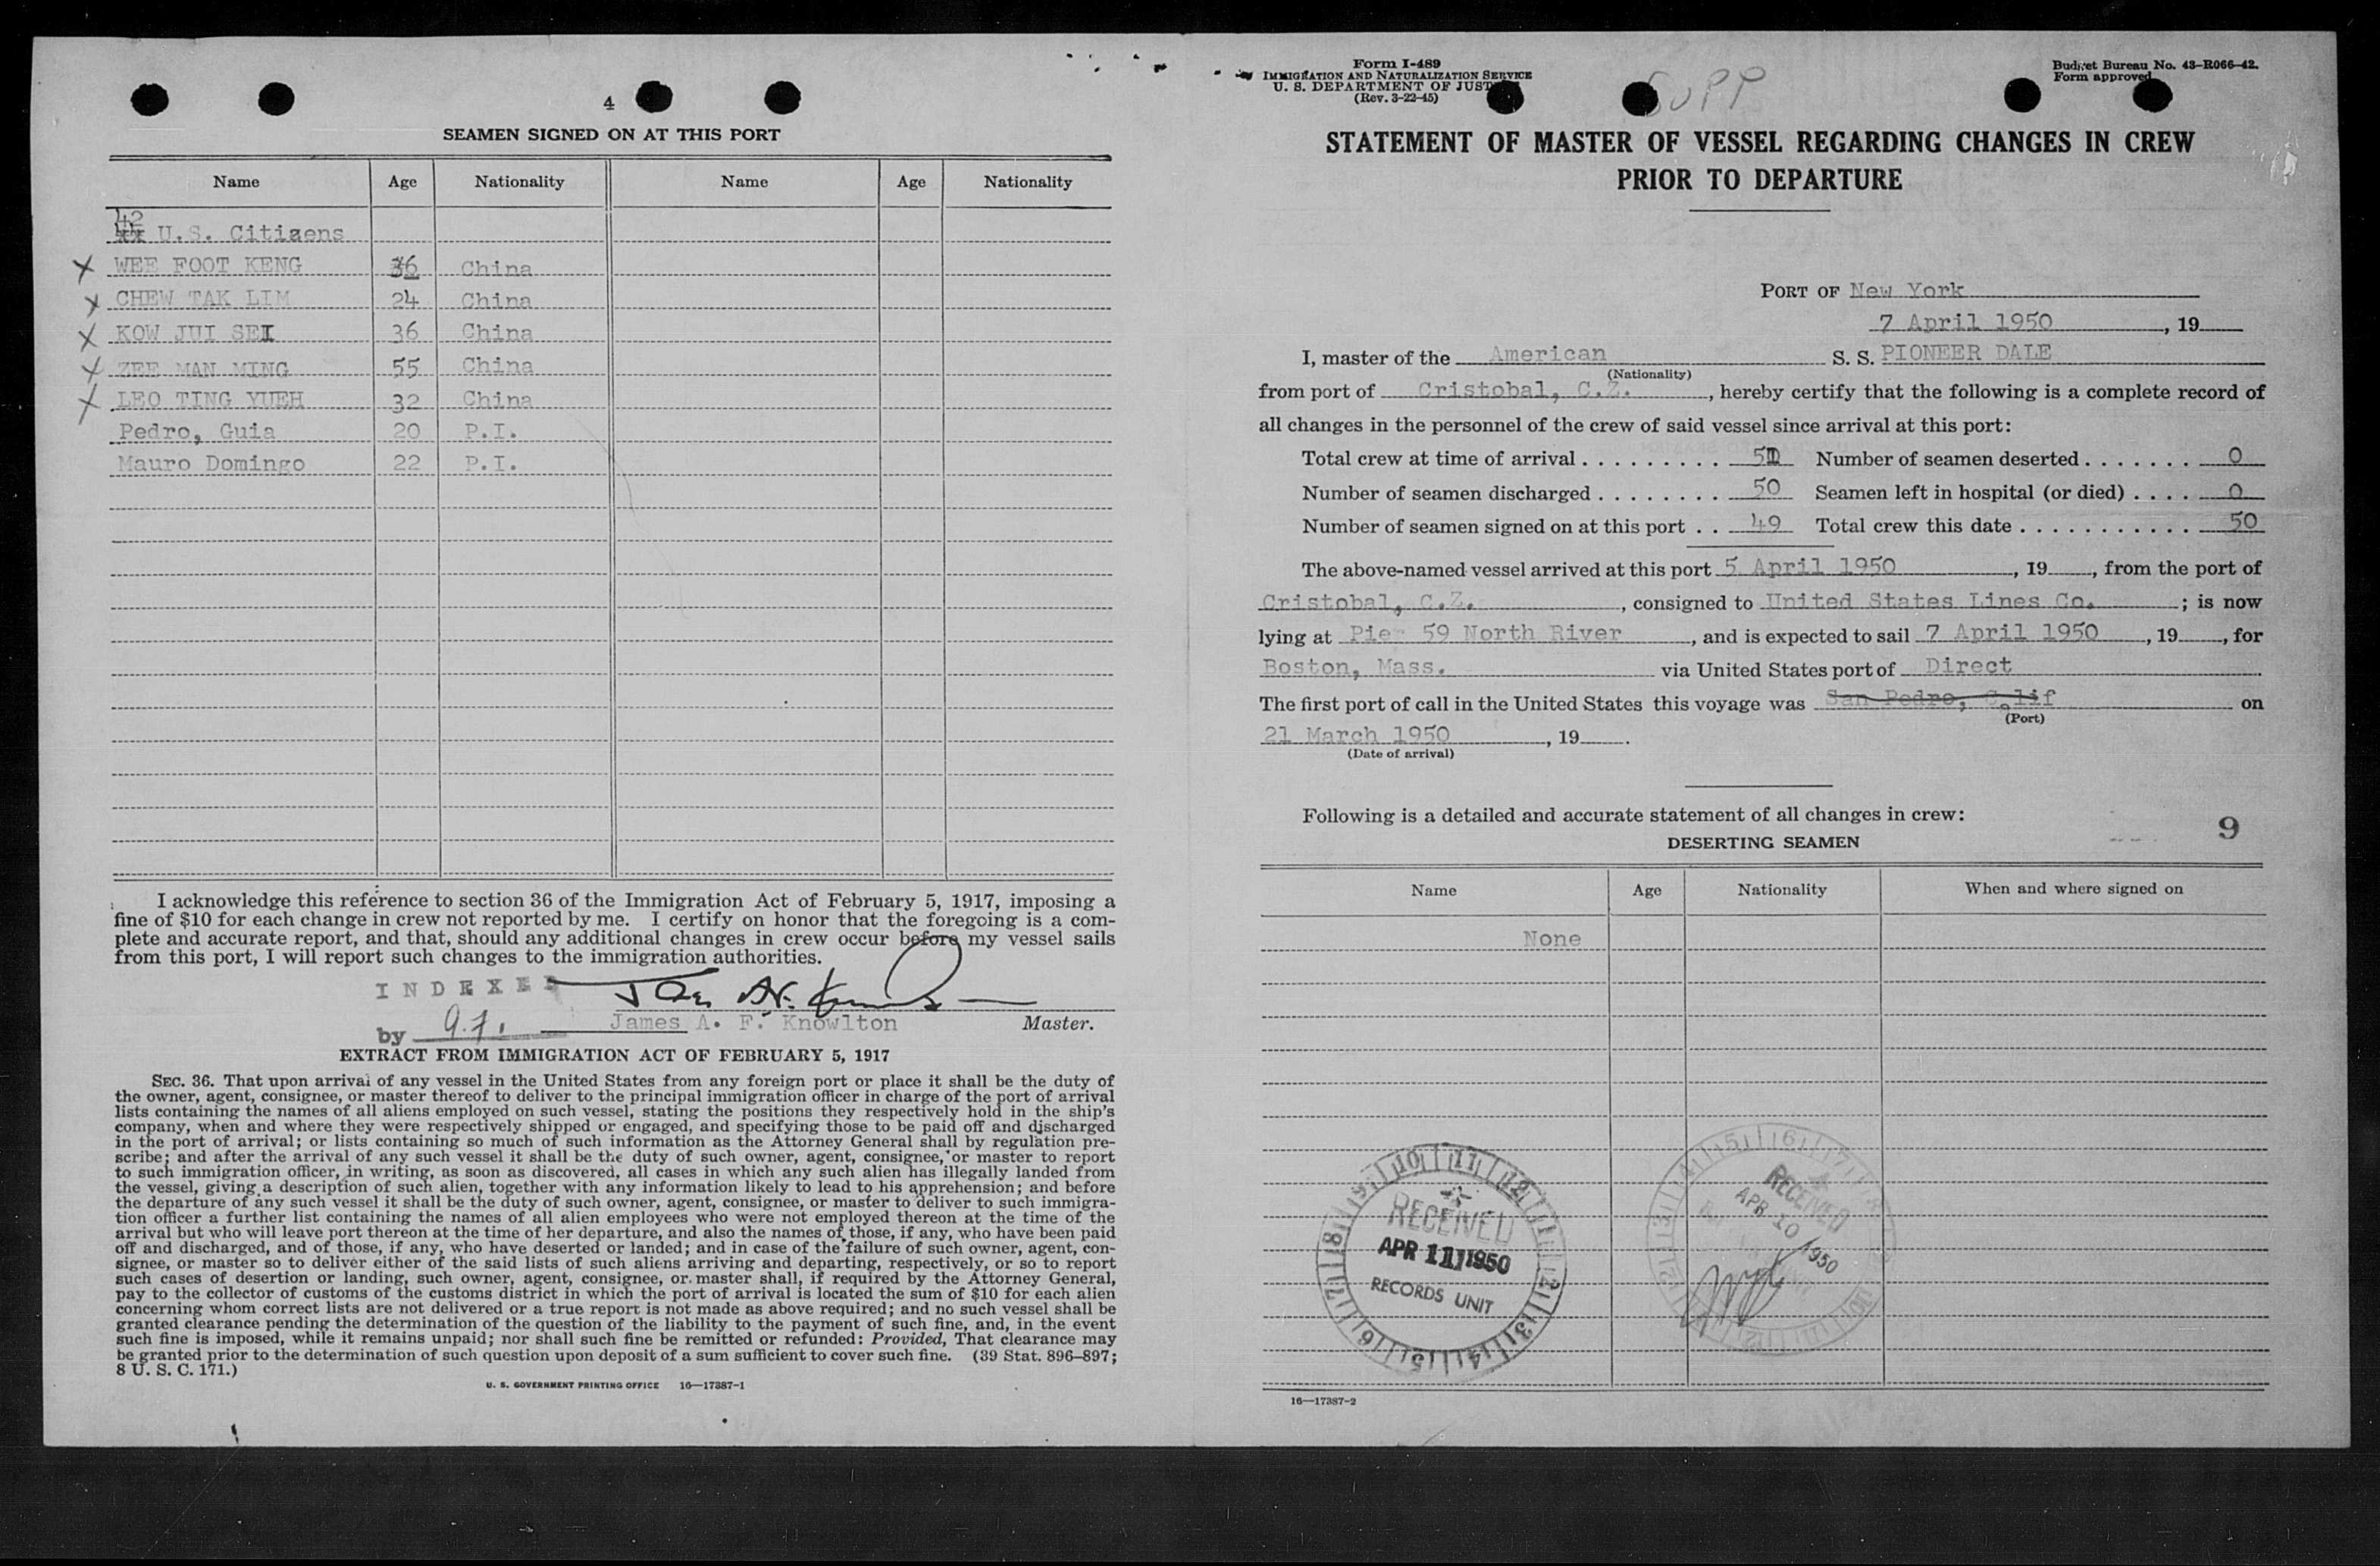 4
SEAMEN SIGNED ON AT THIS PORT
Name Age Nationality Name Age Nationality
42 U.S. Citizens
X WEE FOOT KENG 36 China
X CHEW TAK LIM 24 China
X KOW JUI SEI 36 China
X ZEE MAN MING 55 China
X LEO TING YUEH 32 China
Pedro, Guia 20 P.I.
Mauro Domingo 22 P.I.
I acknowledge this reference to section 36 of the Immigration Act of February 5, 1917, imposing a
fine of $10 for each change in crew not reported by me. I certify on honor that the foregoing is a com-
plete and accurate report, and that, should any additional changes in crew occur before my vessel sails
from this port, I will report such changes to the immigration authorities.
INDEXED
by James A. F. Knowlton Master.
EXTRACT FROM IMMIGRATION ACT OF FEBRUARY 5, 1917
SEC. 36. That upon arrival of any vessel in the United States from any foreign port or place it shall be the duty of
the owner, agent, consignee, or master thereof to deliver to the principal immigration officer in charge of the port of arrival
lists containing the names of all aliens employed on such vessel, stating the positions they respectively hold in the ship's
company, when and where they were respectively shipped or engaged, and specifying those to be paid off and discharged
in the port of arrival; or lists containing so much of such information as the Attorney General shall by regulation pre-
scribe; and after the arrival of any such vessel it shall be the duty of such owner, agent, consignee, or master to report
to such immigration officer, in writing, as soon as discovered, all cases in which any such alien has illegally landed from
the vessel, giving a description of such alien, together with any information likely to lead to his apprehension; and before
the departure of any such vessel it shall be the duty of such owner, agent, consignee, or master to deliver to such immigra-
tion officer a further list containing the names of all alien employees who were not employed thereon at the time of the
arrival but who will leave port thereon at the time of her departure, and also the names of those, if any, who have been paid
off and discharged, and of those, if any, who have deserted or landed; and in case of the failure of such owner, agent, con-
signee, or master so to deliver either of the said lists of such aliens arriving and departing, respectively, or so to report
such cases of desertion or landing, such owner, agent, consignee, or master shall, if required by the Attorney General,
pay to the collector of customs of the customs district in which the port of arrival is located the sum of $10 for each alien
concerning whom correct lists are not delivered or a true report is not made as above required; and no such vessel shall be
granted clearance pending the determination of the question of the liability to the payment of such fine, and, in the event
such fine is imposed, while it remains unpaid; nor shall such fine be remitted or refunded: Provided, That clearance may
be granted prior to the determination of such question upon deposit of a sum sufficient to cover such fine. (39 Stat. 896–897;
8 U. S. C. 171.)
U. S. GOVERNMENT PRINTING OFFICE 16—17387-1
Form I-489
IMMIGRATION AND NATURALIZATION SERVICE
U. S. DEPARTMENT OF JUST
(Rev. 3-22-45)
SUPP
Budget Bureau No. 43-R066-42.
Form approved
STATEMENT OF MASTER OF VESSEL REGARDING CHANGES IN CREW
PRIOR TO DEPARTURE
PORT OF New York
7 April 1950, 19
I, master of the American S. S. PIONEER DALE
(Nationality)
from port of Cristobal, C.Z., hereby certify that the following is a complete record of
all changes in the personnel of the crew of said vessel since arrival at this port:
Total crew at time of arrival . . . . . . . . . 51 Number of seamen deserted . . . . . . . 0
Number of seamen discharged . . . . . . . . 50 Seamen left in hospital (or died) . . . . 0
Number of seamen signed on at this port . . 49 Total crew this date . . . . . . . . . . . 50
The above-named vessel arrived at this port 5 April 1950, 19, from the port of
Cristobal, C.Z., consigned to United States Lines Co.; is now
lying at Pier 59 North River, and is expected to sail 7 April 1950, 19, for
Boston, Mass. via United States port of Direct
The first port of call in the United States this voyage was San Pedro, Calif on
(Port)
21 March 1950, 19.
(Date of arrival)
Following is a detailed and accurate statement of all changes in crew:
9
DESERTING SEAMEN
Name Age Nationality When and where signed on
None
RECEIVED
APR 11 1950
RECORDS UNIT
RECEIVED
APR 10 1950
16—17387-2